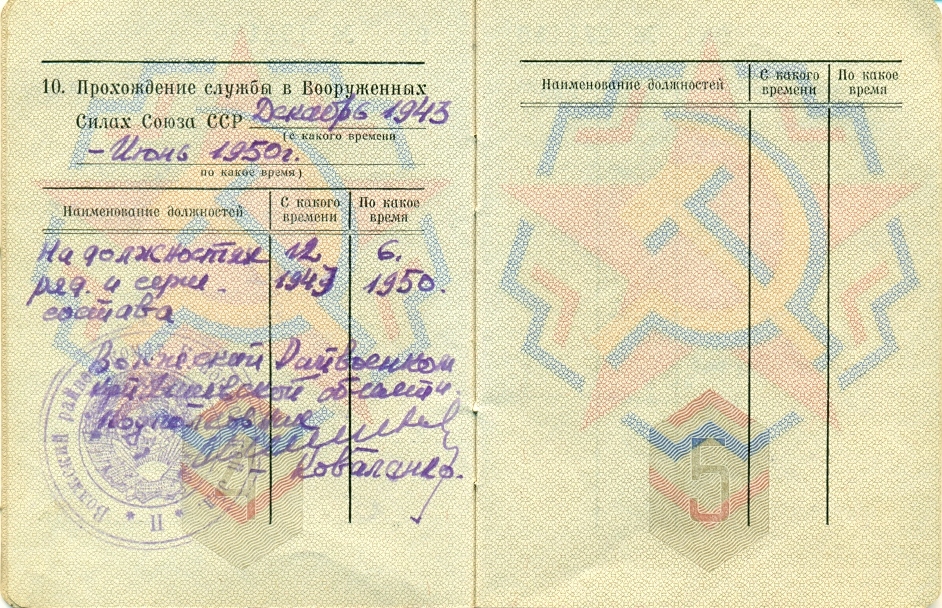 10. Прохождение службы в Вооруженных
Силах Союза ССР Декабрь 1943
(с какого времени
– Июнь 1950г.
по какое время)
Наименование должностей
С какого времени
По какое время
На должностях 12 6.
ряд. и серж. 1943 1950.
состава
Волжский Райвоенком
области
подполковник
Коваленко.
Волжский
II
4
Наименование должностей
С какого времени
По какое время
5